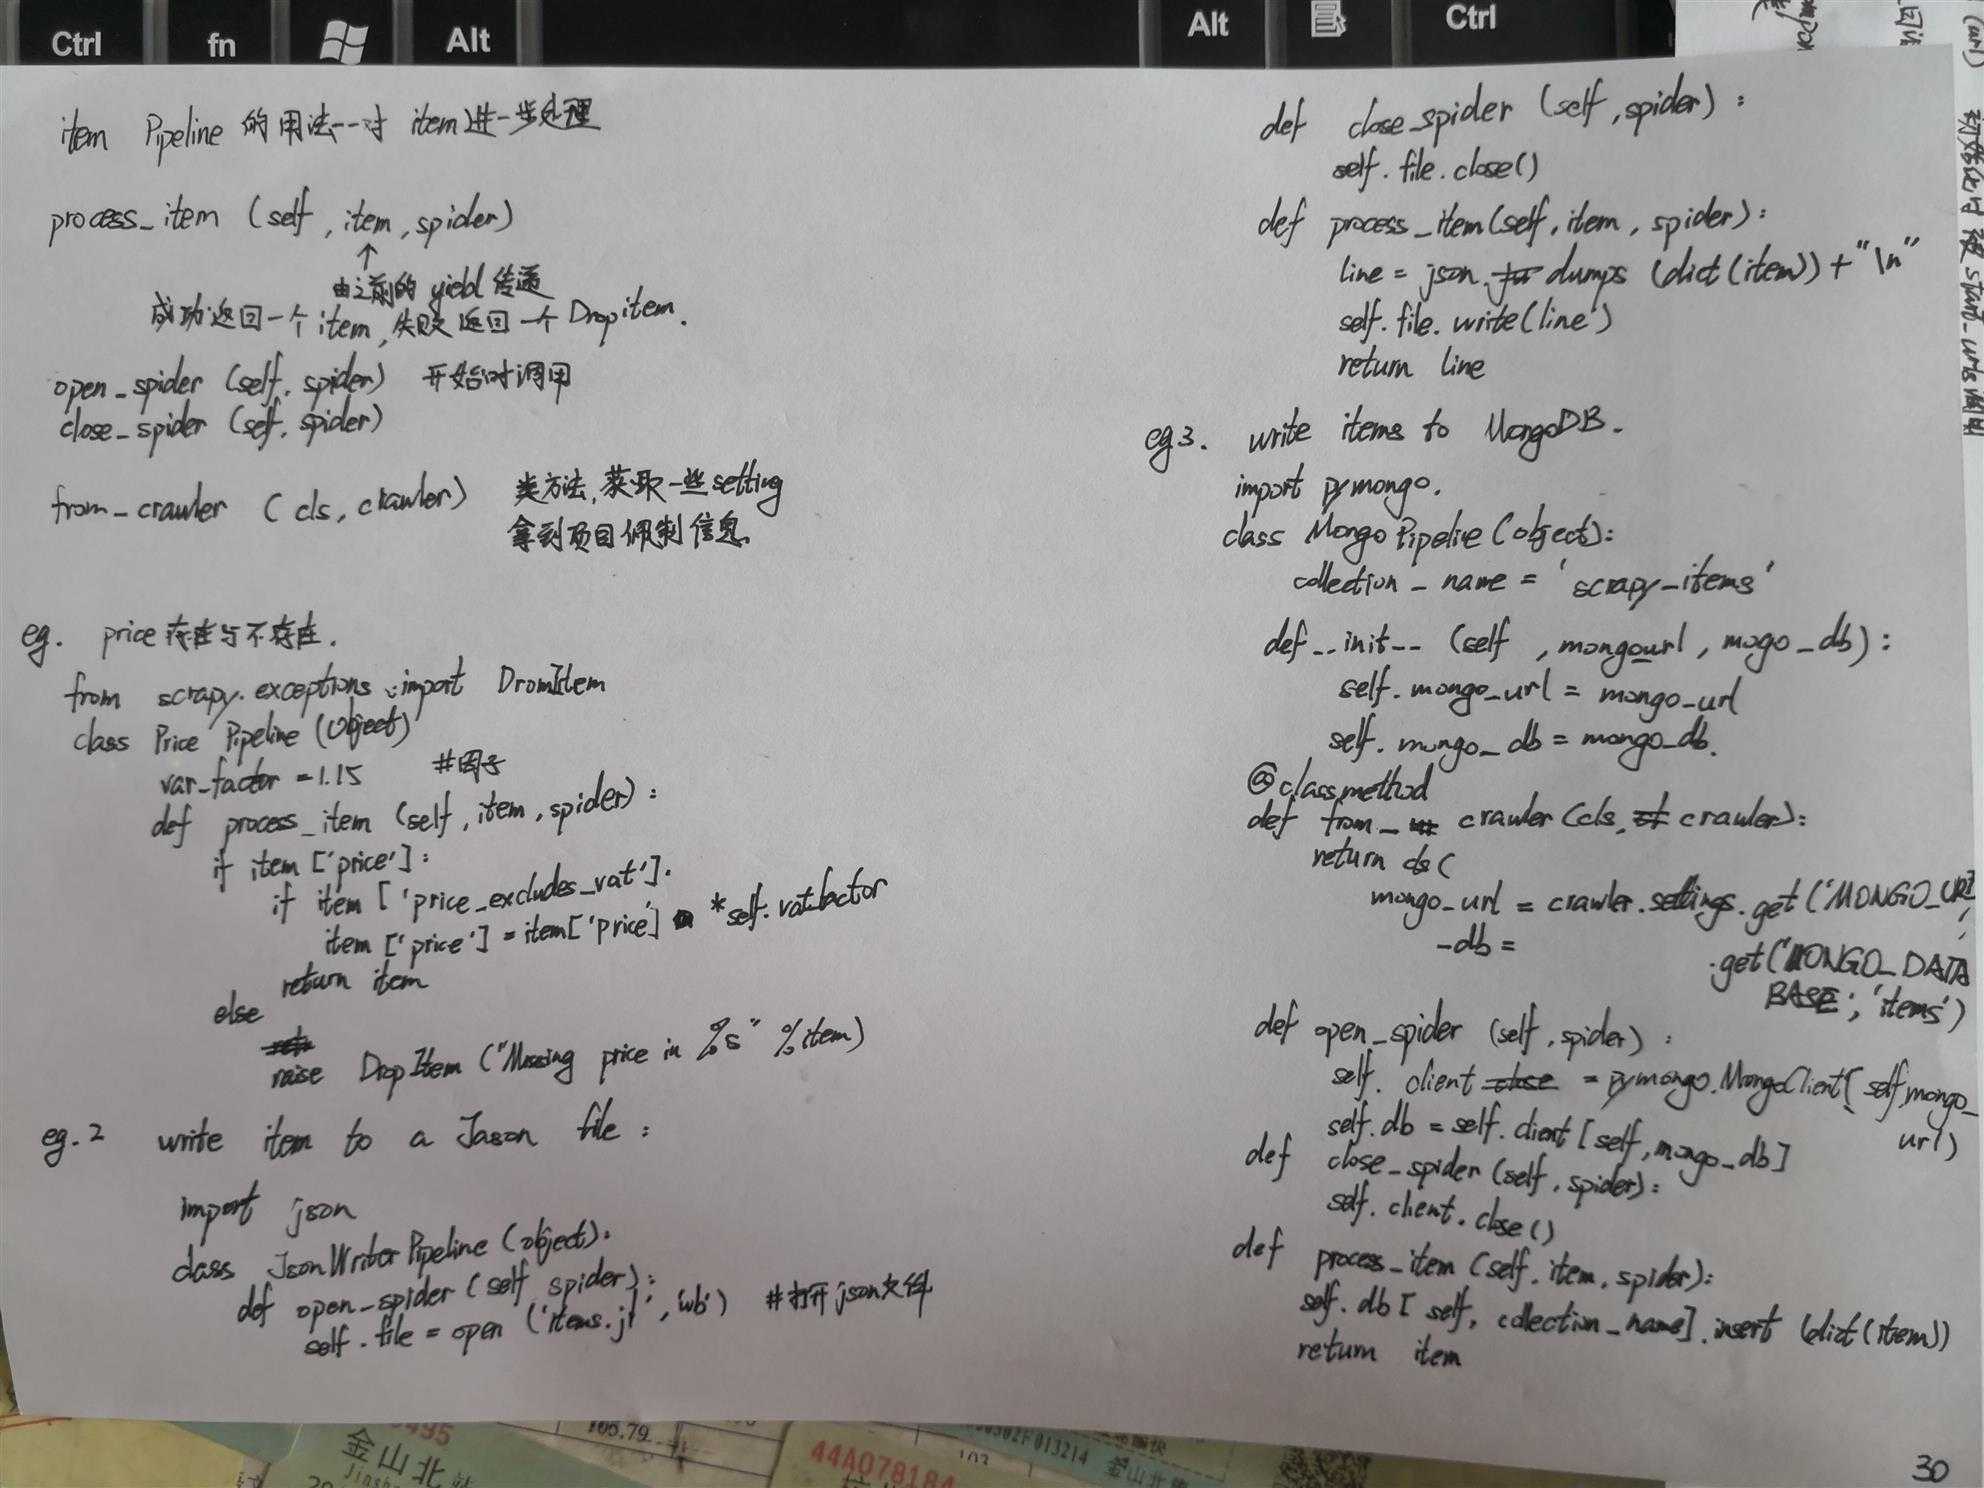 Ctrl
fn
Alt
Alt
Ctrl
item Pipeline 的用法--对 item进一步处理
process_item (self, item, spider)
↑
由之前的 yield 传递
成功返回一个item, 失败返回一个 Dropitem.
open_spider (self. spider) 开始时调用
close_spider (self. spider)
from_crawler (cls, crawler) 类方法,获取一些setting
拿到项目佩制信息.
eg. price存在与不存在.
from scrapy.exceptions import DromItem
class Price Pipeline (Object)
var_factor =1.15 #因子
def process_item (self, item, spider):
if item ['price']:
if item ['price_excludes_vat'].
item ['price'] = item['price'] *self.vat_factor
return item
else
raise DropItem ("Missing price in %s" %item)
eg.2 write item to a Jason file:
import json
class JsonWriterPipeline (object):
def open_spider (self spider):
self.file = open ('items.jl', 'wb') #打开json文件
def close_spider (self, spider):
self.file.close()
def process_item(self, item, spider):
line = json.dumps (dict(item))+"\n"
self.file.write(line)
return line
eg3. write items to MongoDB.
import pymongo.
class MongoPipeline (object):
collection_name = 'scrapy_items'
def __init__ (self, mongourl, mogo_db):
self.mongo_url = mongo_url
self.mongo_db = mongo_db.
@classmethod
def from_crawler (cls, crawler):
return cls(
mongo_url = crawler.settings.get('MONGO_URI,
_db = .get('MONGO_DATA
BASE','items')
def open_spider (self, spider):
self.client = pymongo.MongoClient(self.mongo_
url)
self.db = self.client [self,mongo_db]
def close_spider (self, spider):
self.client.close()
def process_item (self. item, spider):
self.db [self, collection_name].insert (dict(item))
return item
30
初始化时被 start_urls调用
495
金山北
105.79
44A078184
金山北